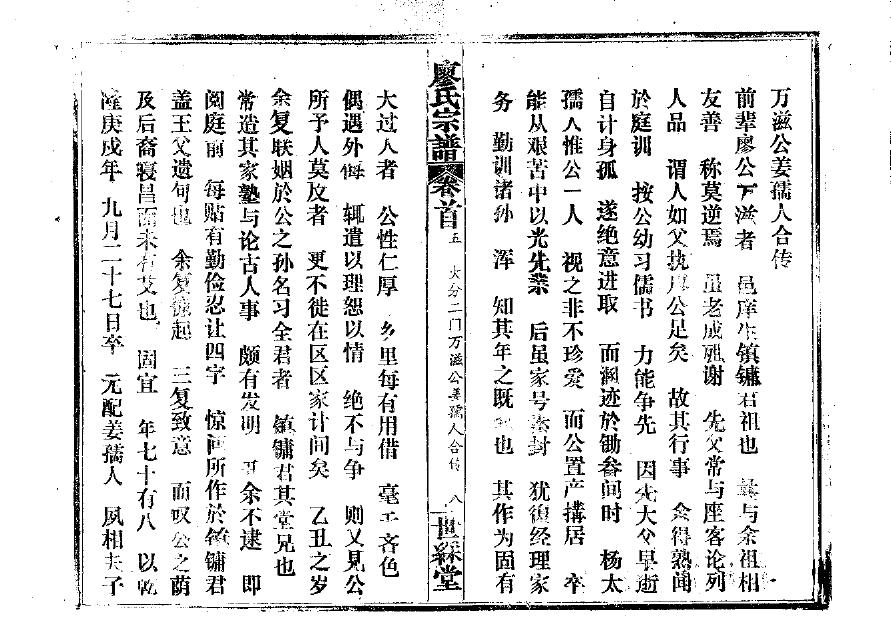 万滋公姜孺人合传
前辈廖公万滋者 邑庠生镇镛君祖也 与余祖相
友善 称莫逆焉 虽老成凋谢 先父常与座客论列
人品 谓人如父执廖公足矣 故其行事 余得熟闻
於庭训 按公幼习儒书 力能争先 因先大父早逝
自计身孤 遂绝意进取 而溷迹於锄畚间时 杨太
孺人惟公一人 视之非不珍爱 而公置产搆居 卒
能从艰苦中以光先业 后虽家号素封 犹复经理家
务 勤训诸孙 浑 知其年之既 也 其作为固有
廖氏宗譜 卷首 五 大分二门万滋公姜孺人合传 八 世綵堂
大过人者 公性仁厚 乡里每有用借 毫无吝色
偶遇外侮 辄遣以理恕以情 绝不与争 则又见公
所予人莫及者 更不徒在区区家计间矣 乙丑之岁
余复联姻於公之孙名习全君者 镇镛君其堂兄也
常造其家塾与论古人事 颇有发明 余不逮 即
阅庭前 每贴有勤俭忍让四字 惊问所作於镇镛君
盖王父遗句也 余复惊起 三复致意 而叹公之荫
及后裔寝昌而未有艾也 固宜 年七十有八 以乾
隆庚戍年 九月二十七日卒 元配姜孺人 夙相夫子